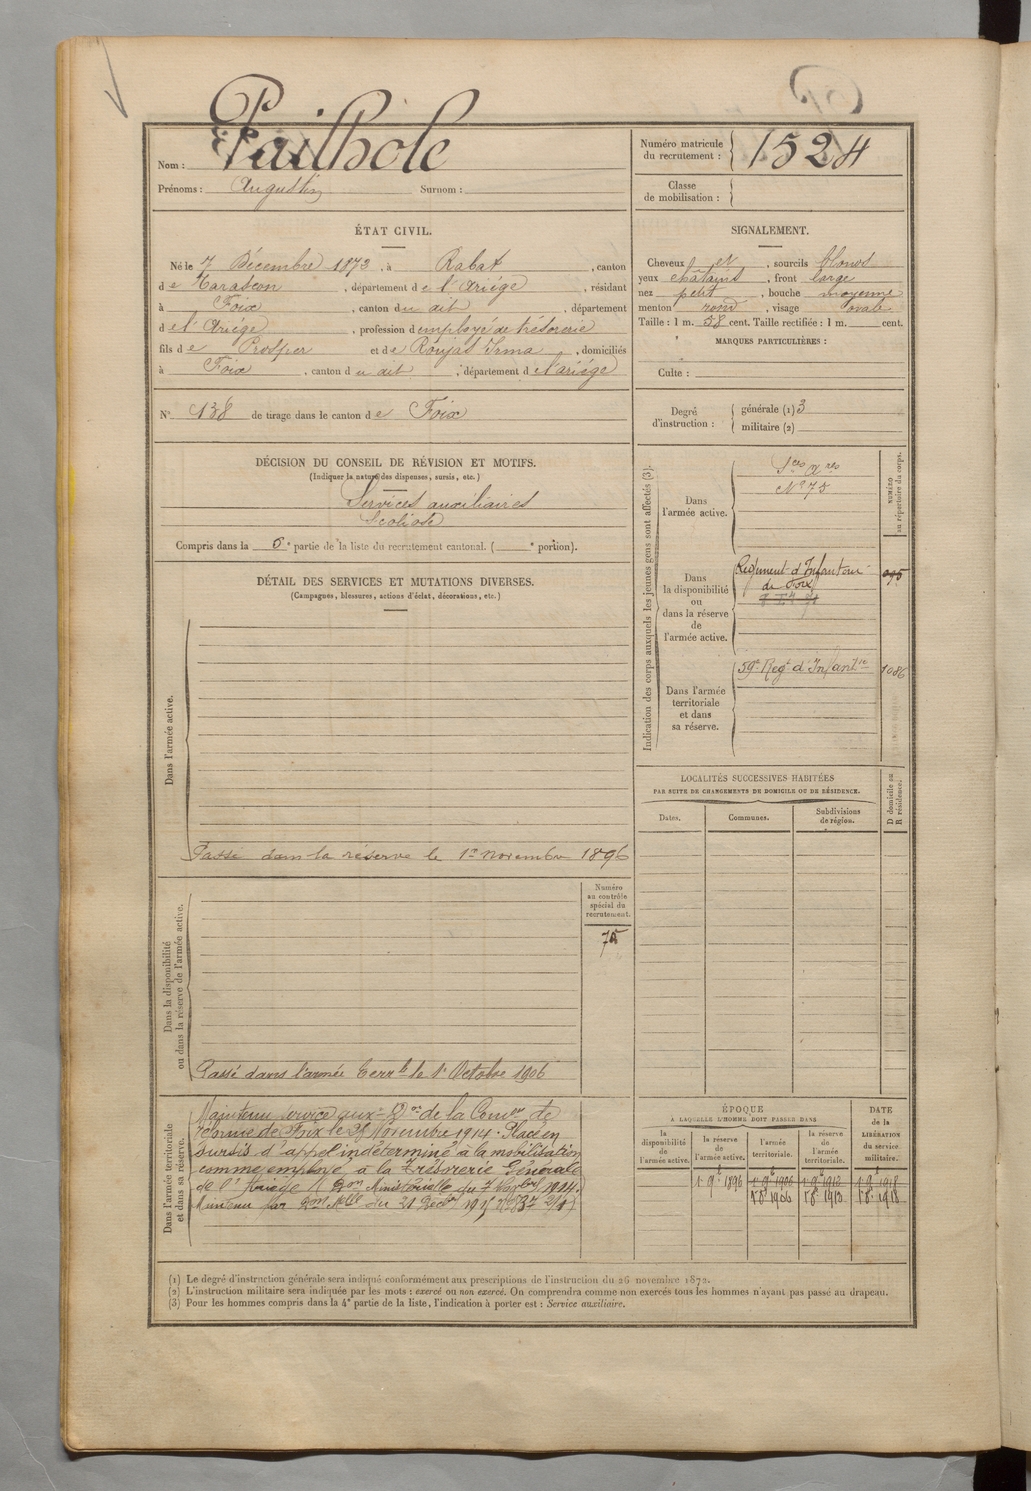 Nom : Pailhole
Prénoms : Augustin Surnom :
Numéro matricule du recrutement : 1524
Classe de mobilisation :
ÉTAT CIVIL.
Né le 7 Décembre 1873, à Rabat, canton
de Tarascon, département de l'Ariège, résidant
à Foix, canton du dit, département
de l'Ariège, profession d'employé de trésorerie
fils de Prosper et de Roujas Irma, domiciliés
à Foix, canton du dit, département de l'ariège
N° 138 de tirage dans le canton de Foix
SIGNALEMENT.
Cheveux et, sourcils blonds
yeux châtains, front large
nez petit, bouche moyenne
menton rond, visage ovale
Taille : 1 m. 58 cent. Taille rectifiée : 1 m. cent.
MARQUES PARTICULIÈRES :
Culte :
Degré d'instruction : générale (1) 3
militaire (2)
DÉCISION DU CONSEIL DE RÉVISION ET MOTIFS.
(Indiquer la nature des dispenses, sursis, etc.)
Services auxiliaires
Scoliose
Compris dans la 5e partie de la liste du recrutement cantonal. ( e portion).
DÉTAIL DES SERVICES ET MUTATIONS DIVERSES.
(Campagnes, blessures, actions d'éclat, décorations, etc.)
Dans l'armée active.
Passé dans la réserve le 1er novembre 1896
Dans la disponibilité
ou dans la réserve de l'armée active.
Numéro
au contrôle
spécial du
recrutement.
75
Passé dans l'armée terrle le 1r Octobre 1906
Dans l'armée territoriale
et dans sa réserve.
Maintenu service auxre Don de la Comon de
réforme de Foix le 28 Novembre 1914. Placé en
sursis d'appel indéterminé à la mobilisation
comme employé à la Trésorerie Générale
de l'Ariège Don Ministérielle du 7 1914.
Maintenu par Don Mlle du 21 Décbre 1915
Indication des corps auxquels les jeunes gens sont affectés (3).
NUMÉRO
au répertoire du corps.
Dans
l'armée active.
Sces Ares
N° 75
Dans
la disponibilité
ou
dans la réserve
de
l'armée active.
Régiment d'Infanterie
de Foix
Dans l'armée
territoriale
et dans
sa réserve.
59e Regt d'Infantie 1086
LOCALITÉS SUCCESSIVES HABITÉES
PAR SUITE DE CHANGEMENTS DE DOMICILE OU DE RÉSIDENCE.
Dates. Communes. Subdivisions de région.
D domicile ou
R résidence.
ÉPOQUE
A LAQUELLE L'HOMME DOIT PASSER DANS
DATE
de la
LIBÉRATION
du service
militaire.
la disponibilité de l'armée active. la réserve de l'armée active. l'armée territoriale. la réserve de l'armée territoriale.
1r 9bre 1896 1r 9bre 1906 1r 9bre 1912 1r 9bre 1918
1r 8bre 1906 1r 8bre 1913 1r 8bre 1918
(1) Le degré d'instruction générale sera indiqué conformément aux prescriptions de l'instruction du 26 novembre 1872.
(2) L'instruction militaire sera indiquée par les mots : exercé ou non exercé. On comprendra comme non exercés tous les hommes n'ayant pas passé au drapeau.
(3) Pour les hommes compris dans la 4e partie de la liste, l'indication à porter est : Service auxiliaire.